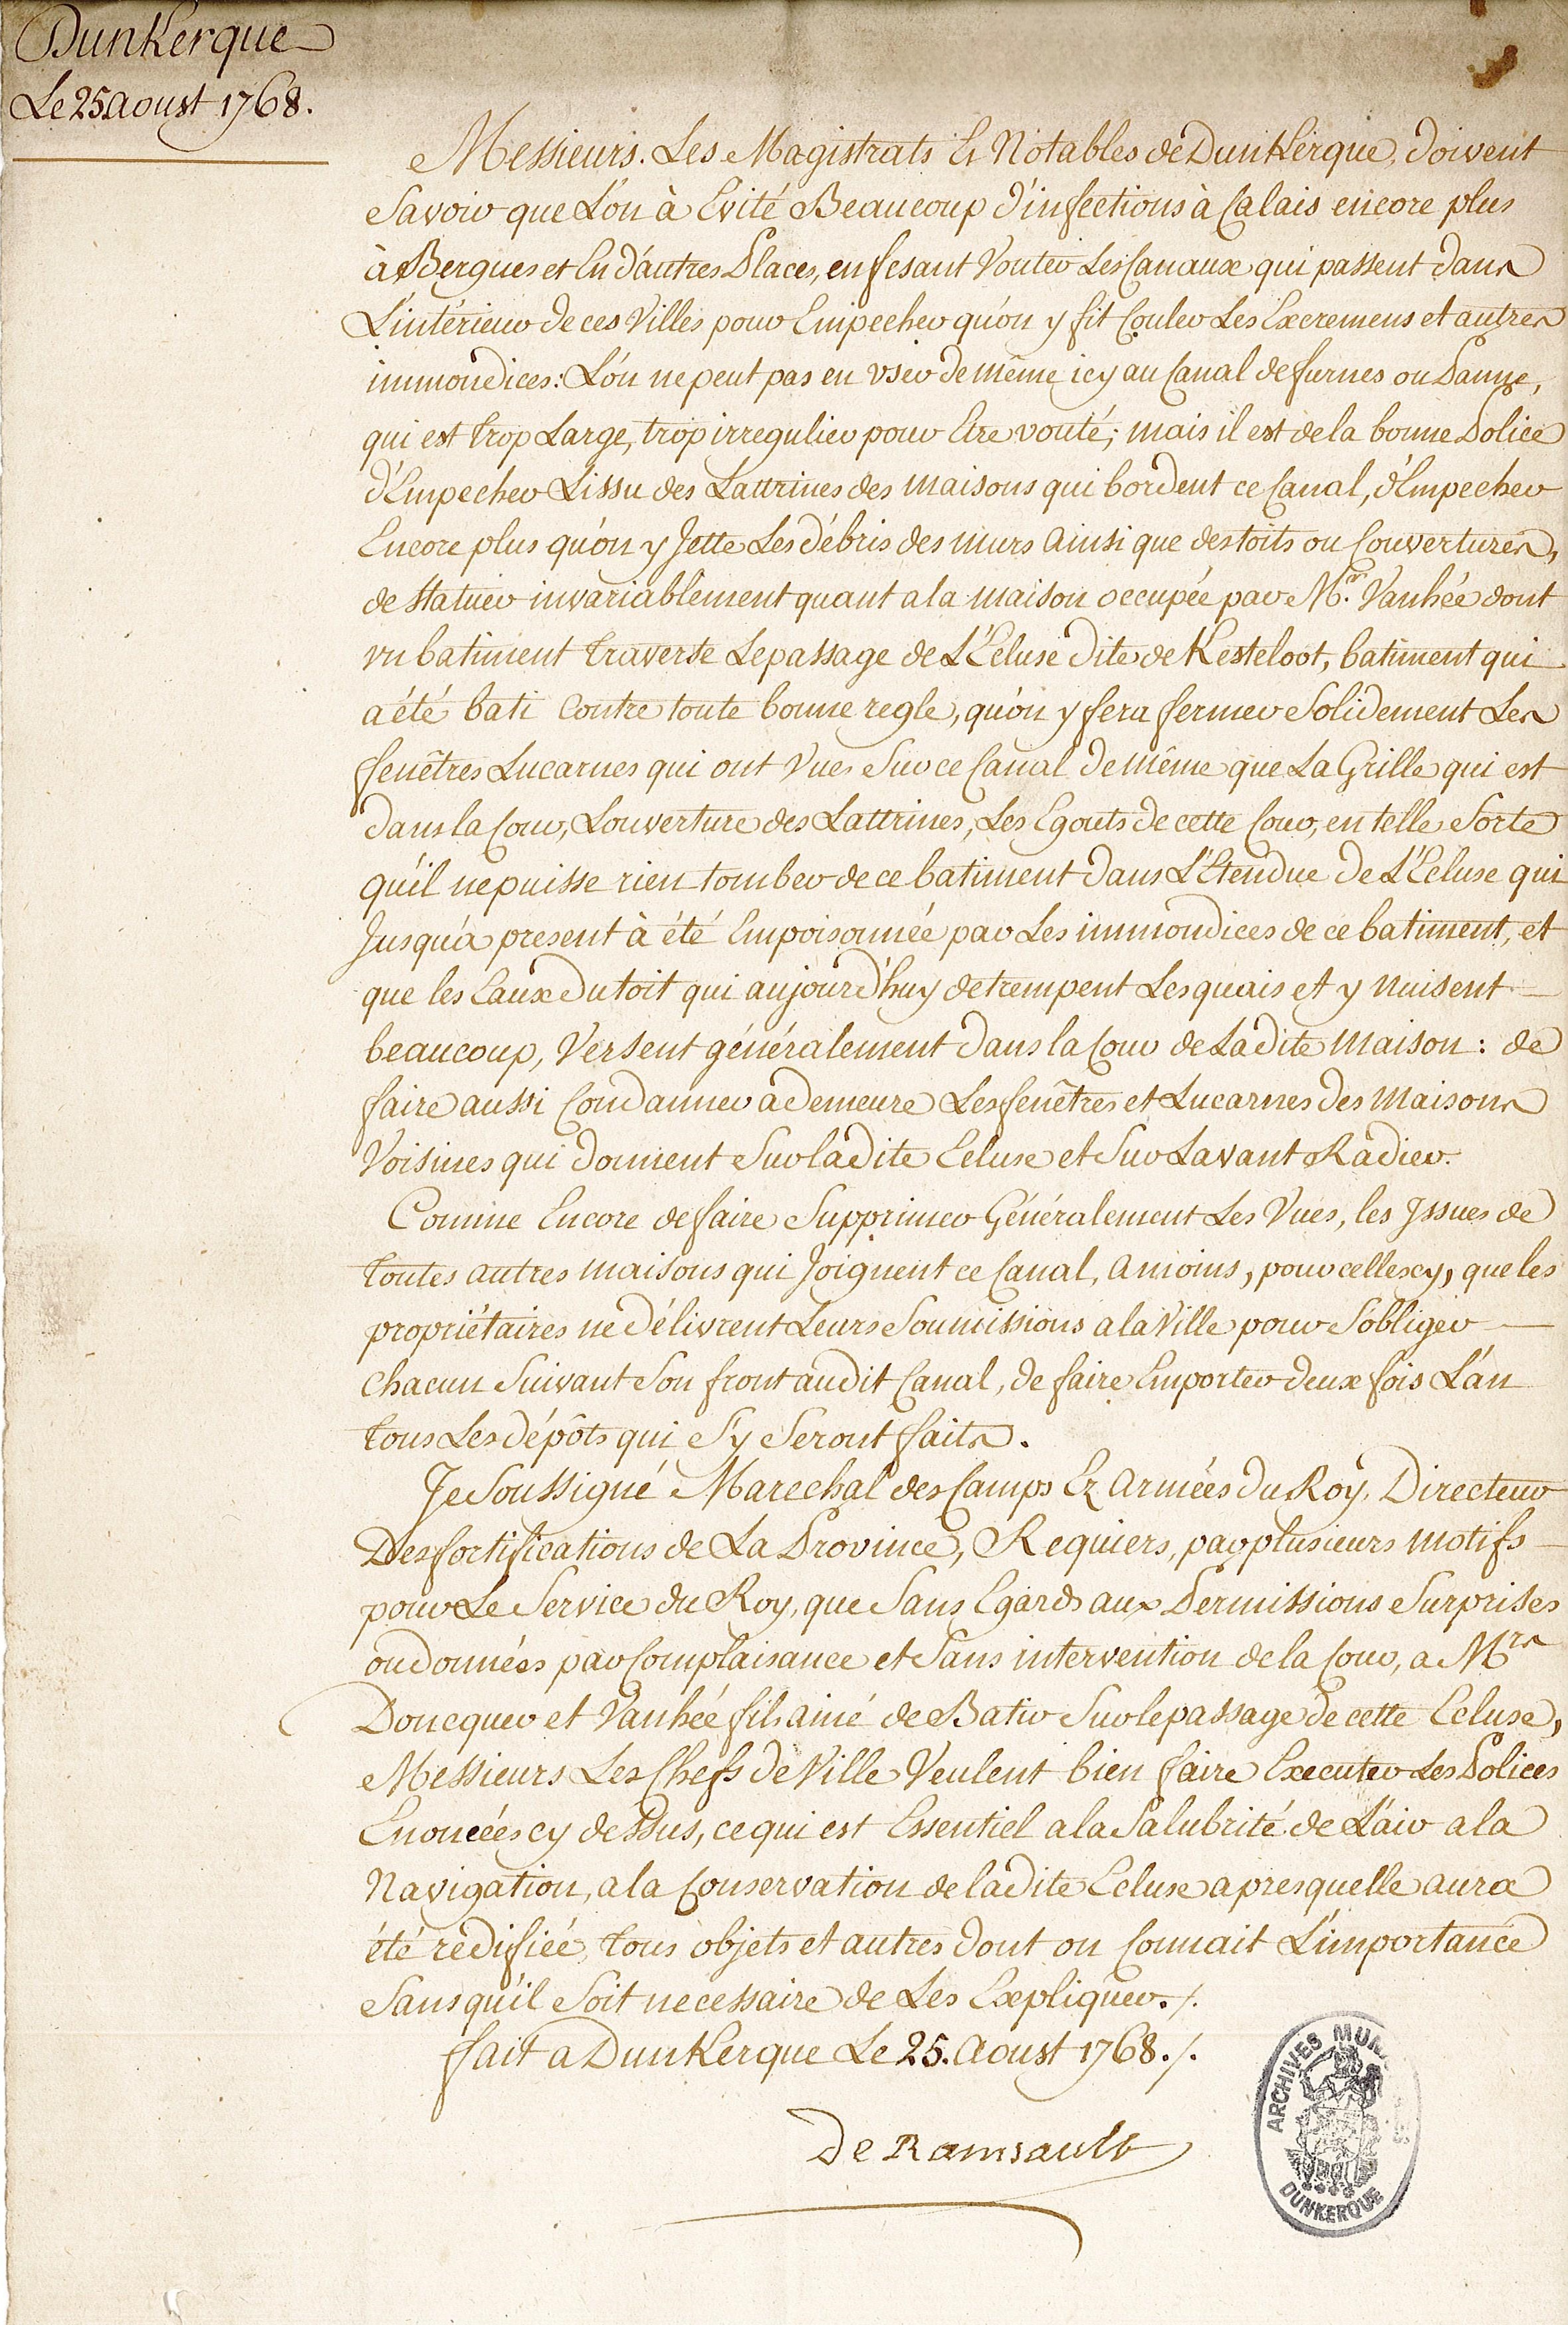 Dunkerque
Le 25 Aoust 1768.
Messieurs. Les Magistrats Et Notables de Dunkerque, doivent
Savoir que L'on à Evité Beaucoup d'infections à Calais encore plus
à Bergues et En d'autres Places, en fesant Vouter Les Canaux qui passent dans
L'intérieur de ces Villes pour Empecher qu'on y fit Couler Les Excremens et autres
immondices: L'on ne peut pas en user de même icy au Canal de furnes ou Panne,
qui est trop Large, trop irregulier pour Etre vouté; mais il est de la bonne Police
d'Empecher Lissu des Lattrines des maisons qui bordent ce Canal, d'Empecher
Encore plus qu'on y Jette Les débris des murs Ainsi que des toits ou Couvertures,
de Statuer invariablement quant a la maison occupée par Mr. Vanhée dont
un batiment traverse Le passage de L'Ecluse dite de Kesteloot, batiment qui
a été bati Contre toute bonne regle, qu'on y fera fermer Solidement Les
fenêtres Lucarnes qui ont Vues Sur ce Canal de même que La Grille qui est
dans la Cour, Louverture des Lattrines, Les Egouts de cette Cour, en telle Sorte
qu'il ne puisse rien tomber de ce batiment dans L'Etendue de L'Ecluse qui
Jusqu'à present à été Empoisonnée par Les immondices de ce batiment, et
que les Eaux du toit qui aujourd'huy detrempent Les quais et y nuisent
beaucoup, Versent généralement dans la Cour de La dite maison: de
faire aussi Condanner a demeure Les fenêtres et Lucarnes des Maisons
Voisines qui donnent Sur la dite Ecluse et Sur Lavant Radier.
Comme Encore de faire Supprimer Généralement Les Vues, les Issues de
toutes autres maisons qui Joignent ce Canal, amoins, pour celles cy, que les
propriétaires ne délivrent Leurs Soumissions a la Ville pour S'obliger
Chacun Suivant Son front audit Canal, de faire Emporter deux fois L'an
tous Les dépôts qui S'y Seront faits.
Je Soussigné Marechal des Camps Et Armées du Roy, Directeur
Des fortifications de La Province, Requiers, par plusieurs motifs
pour Le Service du Roy, que Sans Egards aux Permissions Surprises
ou données par Complaisance et Sans intervention de la Cour, a Mrs
Doncquer et Vanhée fils ainé de Batir Sur le passage de cette Ecluse,
Messieurs Les Chefs de Ville Veulent bien faire Executer Les Polices
Enoncées cy dessus, ce qui est Essentiel a la Salubrité de L'air a la
Navigation, a la Conservation de la dite Ecluse apres quelle aura
été redifiée, tous objets et autres dont on Connait L'importance
Sans qu'il Soit necessaire de Les Expliquer./.
fait a Dunkerque Le 25. Aoust 1768./.
De Ramsault
ARCHIVES MUN
DUNKERQUE